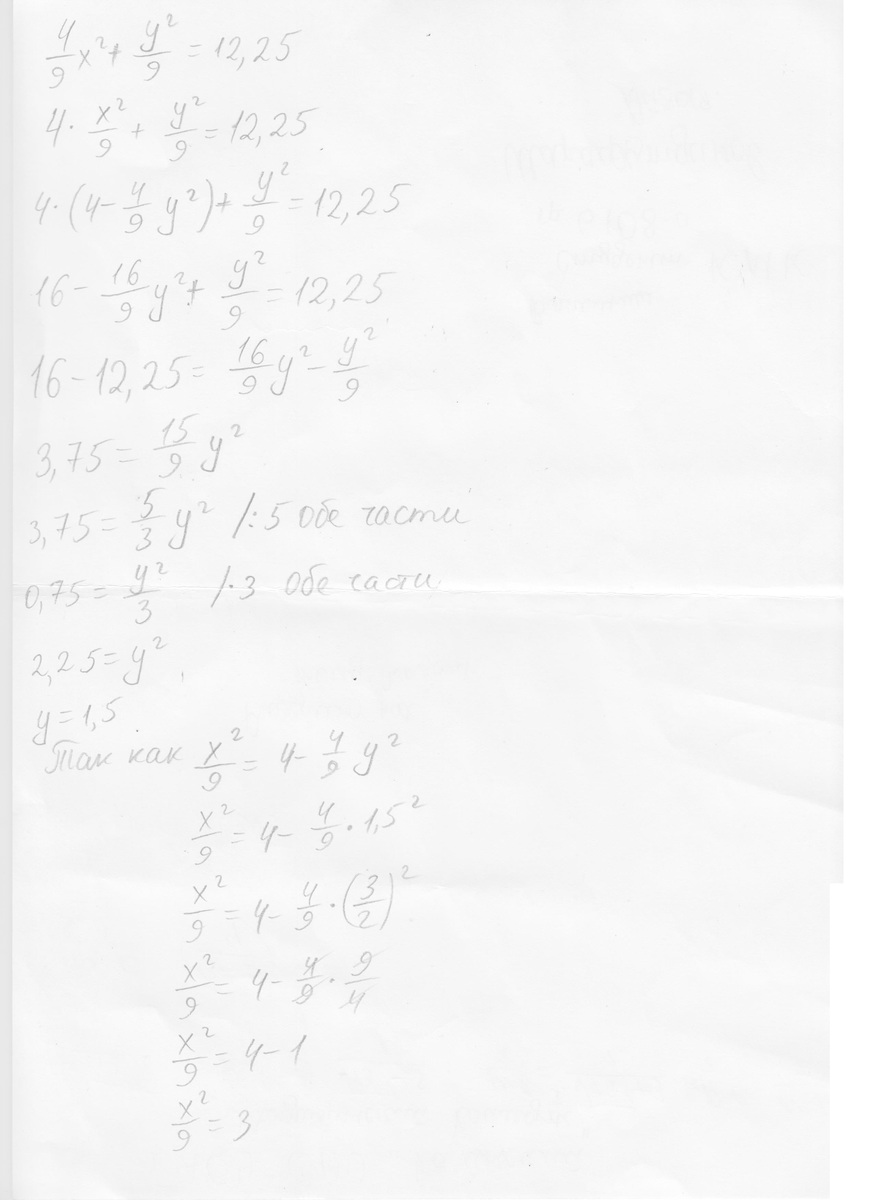 4/9 x² + y²/9 = 12,25
4 · x²/9 + y²/9 = 12,25
4 · (4 - 4/9 y²) + y²/9 = 12,25
16 - 16/9 y² + y²/9 = 12,25
16 - 12,25 = 16/9 y² - y²/9
3,75 = 15/9 y²
3,75 = 5/3 y² /:5 обе части
0,75 = y²/3 /·3 обе части
2,25 = y²
y = 1,5
Так как x²/9 = 4 - 4/9 y²
x²/9 = 4 - 4/9 · 1,5²
x²/9 = 4 - 4/9 · (3/2)²
x²/9 = 4 - 4/9 · 9/4
x²/9 = 4 - 1
x²/9 = 3